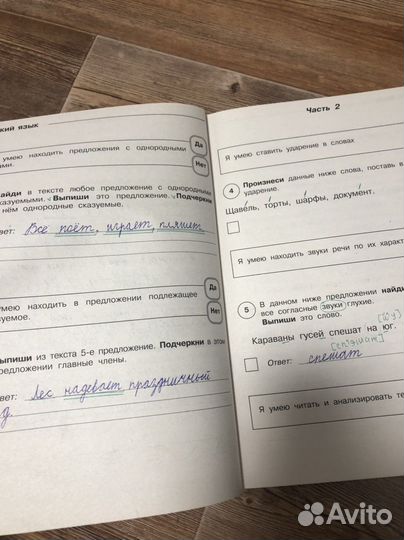 кий язык
умею находить предложения с однородными
ами.
Да
Нет
айди в тексте любое предложение с однородными
казуемыми. Выпиши это предложение. Подчеркни
нём однородные сказуемые.
вет: Все поёт, играет, пляшет.
умею находить в предложении подлежащее
зуемое.
Да
Нет
ыпиши из текста 5-е предложение. Подчеркни в этом
редложении главные члены.
вет: Лес надевает праздничный
д.
Часть 2
Я умею ставить ударение в словах
4 Произнеси данные ниже слова, поставь в
ударение.
Щаве́ль, то́рты, ша́рфы, докуме́нт.
Я умею находить звуки речи по их характ
5 В данном ниже предложении найди
все согласные звуки глухие.
Выпиши это слово.
[йу]
Караваны гусей спешат на юг.
[сп'эшат]
Ответ: спешат
Я умею читать и анализировать те
Avito